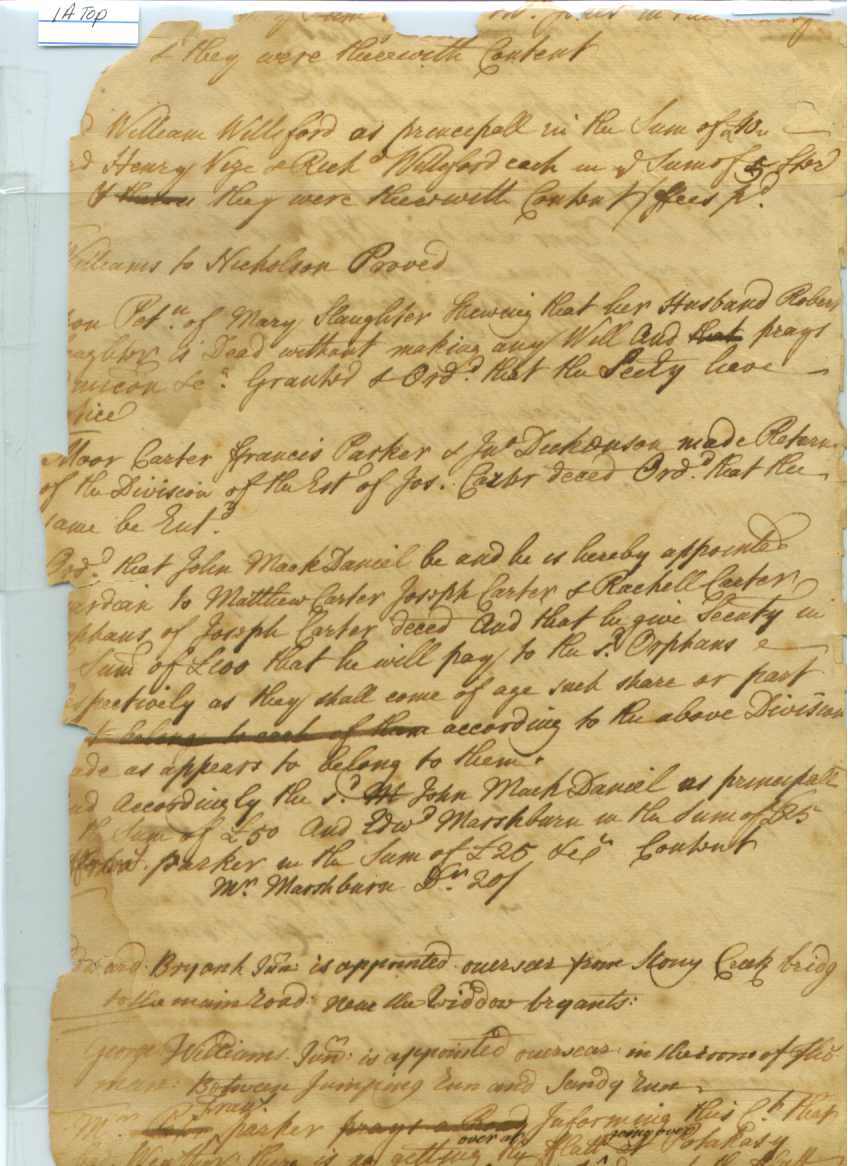 1A Top
& they were therewith Content
William Williford as principall in the Sum of
Henry Vize & Richd Williford each in ye Sum of 5 Ster
& they were therewith Content ffees pd.
Williams to Nicholson Proved
on Petn. of Mary Slaughter Shewing that her Husband Robert
aughter is Dead without making any Will And that prays
&c. Granted & Ord.d that the Secty have
tice
Moor Carter ffrancis Parker & Jno Dickonson made Return
of the Division of the Est of Jos. Carter deced Ord.d that the
same be Ent.d
Ord.d that John MackDaniel be and he is hereby appointed
ardian to Matthew Carter Joseph Carter & Rachell Carter
orphans of Joseph Carter deced And that he give Secuty in
Sum of £100 that he will pay to the sd. Orphans
espectively as they shall come of age such share or part
belong to each of them according to the above Division
ade as appears to belong to them.
nd Accordingly the sd. John MackDaniel as principall
th Sum of £50 And Edwd Marshburn in the Sum of £25
parker in the Sum of £25 &c Content
Mr. Marshburn Dr. 20/
Bryant Junr is appointed overseer from Stony Creek bridg
to the main road: near the Widdow bryants:
George Williams Junr: is appointed overseer in the room of
man: Between Jumping Run and Sandy Run
Fran.s
parker prays a Road Informing this Ct. that
over at
there is no getting Potakasy